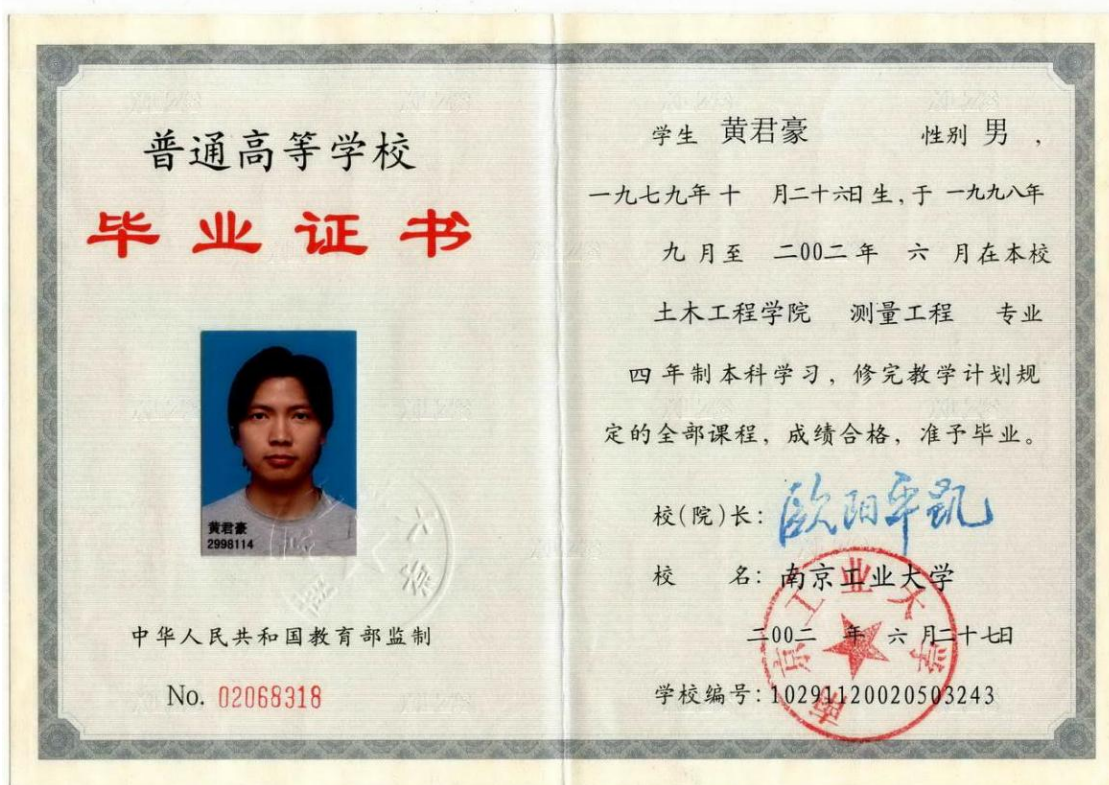 普通高等学校
毕业证书
黄君豪
2998114
中华人民共和国教育部监制
No. 02068318
学生 黄君豪 性别 男 ,
一九七九年十 月二十六日生,于 一九九八年
九 月至 二00二年 六 月在本校
土木工程学院 测量工程 专业
四 年制本科学习, 修完教学计划规
定的全部课程, 成绩合格, 准予毕业。
校(院)长: 欧阳平凯
校 名: 南京工业大学
二00二 年 六 月二十七日
学校编号: 10291120020503243
南京工业大学